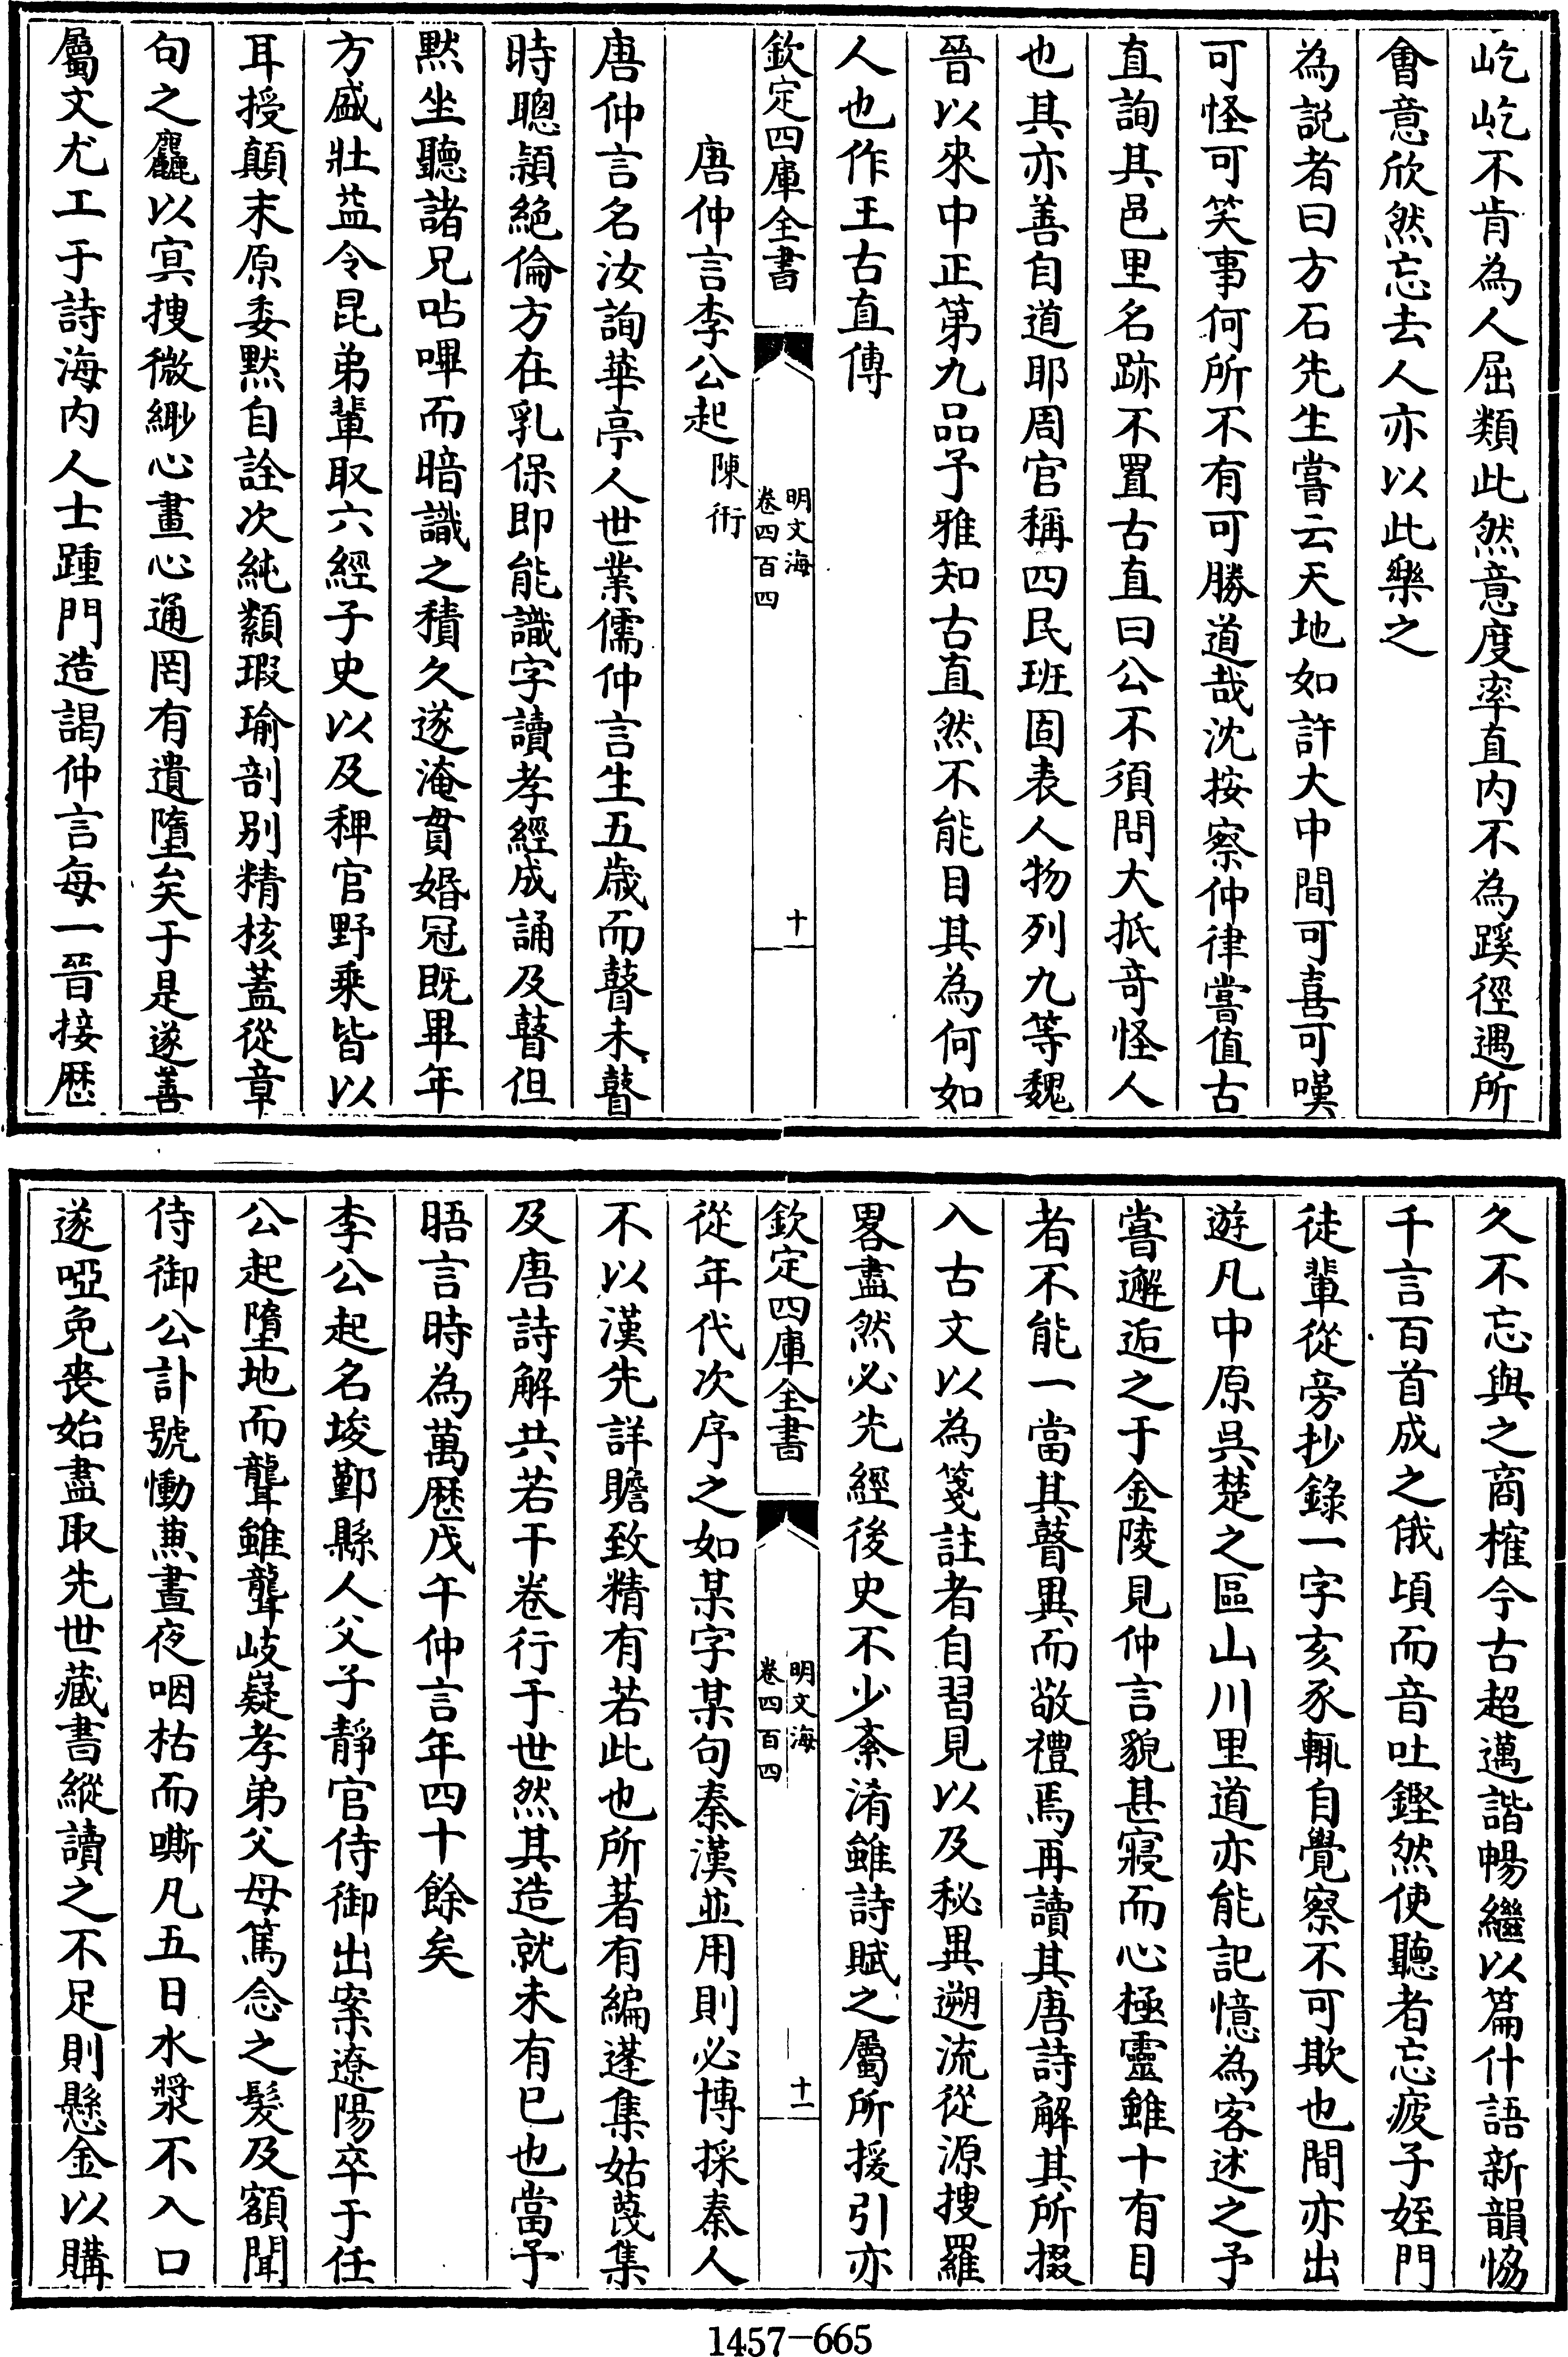 屹屹不肯為人屈類此然意度率直内不為蹊徑遇所
會意欣然忘去人亦以此樂之
為説者曰方石先生嘗云天地如許大中間可喜可嘆
可怪可笑事何所不有可勝道哉沈按察仲律嘗值古
直詢其邑里名跡不置古直曰公不須問大抵竒怪人
也其亦善自道耶周官稱四民班固表人物列九等魏
晉以來中正第九品予雅知古直然不能目其為何如
人也作王古直傳
欽定四庫全書
明文海
卷四百四
十
唐仲言李公起 陳衎
唐仲言名汝詢華亭人世業儒仲言生五歳而瞽未瞽
時聰穎絶倫方在乳保即能識字讀孝經成誦及瞽但
黙坐聽諸兄呫嗶而暗識之積久遂淹貫婚冠既畢年
方盛壯益令昆弟輩取六經子史以及稗官野乘皆以
耳授顛末原委黙自詮次純纇瑕瑜剖别精核蓋從章
句之麤以㝠搜微緲心畫心通罔有遺墮矣于是遂善
屬文尤工于詩海内人士踵門造謁仲言每一晉接歴
久不忘與之商榷今古超邁諧暢繼以篇什語新韻恊
千言百首成之俄頃而音吐鏗然使聽者忘疲子姪門
徒輩從旁抄錄一字亥豕輒自覺察不可欺也間亦出
遊凡中原吳楚之區山川里道亦能記憶為客述之予
嘗邂逅之于金陵見仲言貌甚寢而心極靈雖十有目
者不能一當其瞽異而敬禮焉再讀其唐詩解其所掇
入古文以為箋註者自習見以及秘異遡流從源搜羅
畧盡然必先經後史不少紊淆雖詩賦之屬所援引亦
欽定四庫全書
明文海
卷四百四
十一
從年代次序之如某字某句秦漢並用則必博採秦人
不以漢先詳贍致精有若此也所著有編蓬集姑蔑集
及唐詩解共若干卷行于世然其造就未有已也當予
晤言時為萬歴戊午仲言年四十餘矣
李公起名埈鄞縣人父子靜官侍御出案遼陽卒于任
公起墮地而聾雖聾岐嶷孝弟父母篤念之髮及額聞
侍御公訃號慟兼晝夜咽枯而嘶凡五日水漿不入口
遂啞免喪始盡取先世藏書縱讀之不足則懸金以購
1457-665